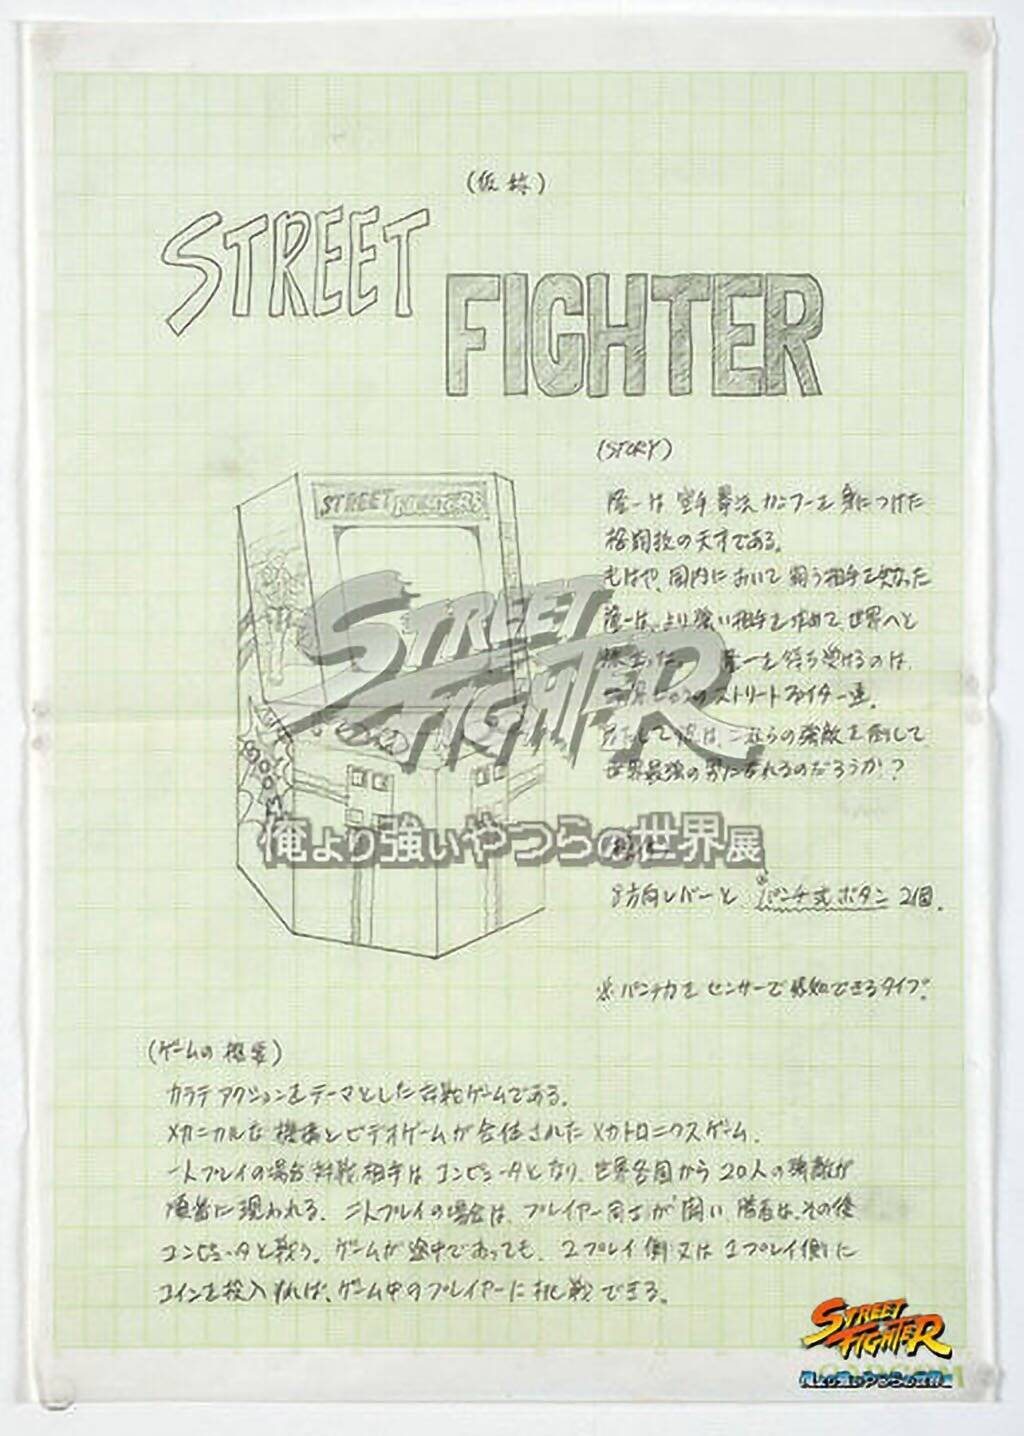 (仮称)
STREET
FIGHTER
(STORY)
STREET FIGHTERS
隆一は空手拳法カンフーを身につけた
格闘技の天才である。
もはや、国内において闘う相手を失った
隆一は、より強い相手を求めて、世界へと
隆一を待ち受けるのは、
のストリートファイター達。
はたして彼は、これらの強敵を倒して
世界最強の男になれるのだろうか?
STREET
FIGHTER
俺より強いやつらの世界展
8方向レバーと パンチ式ボタン 2個.
※パンチ力をセンサーで感知できるタイプ.
(ゲームの概要)
カラテアクションをテーマとした対戦ゲームである。
メカニカルな機構とビデオゲームが合体されたメカトロニクスゲーム.
一人プレイの場合対戦相手はコンピュータとなり、世界各国から20人の強敵が
順番に現われる. 二人プレイの場合は、プレイヤー同士が闘い、勝者は、その後
コンピュータと戦う. ゲームが途中であっても、2プレイ側又は1プレイ側に
コインを投入すれば、ゲーム中のプレイヤーに挑戦できる.
STREET
FIGHTER
CAPCOM
俺より強いやつらの世界展